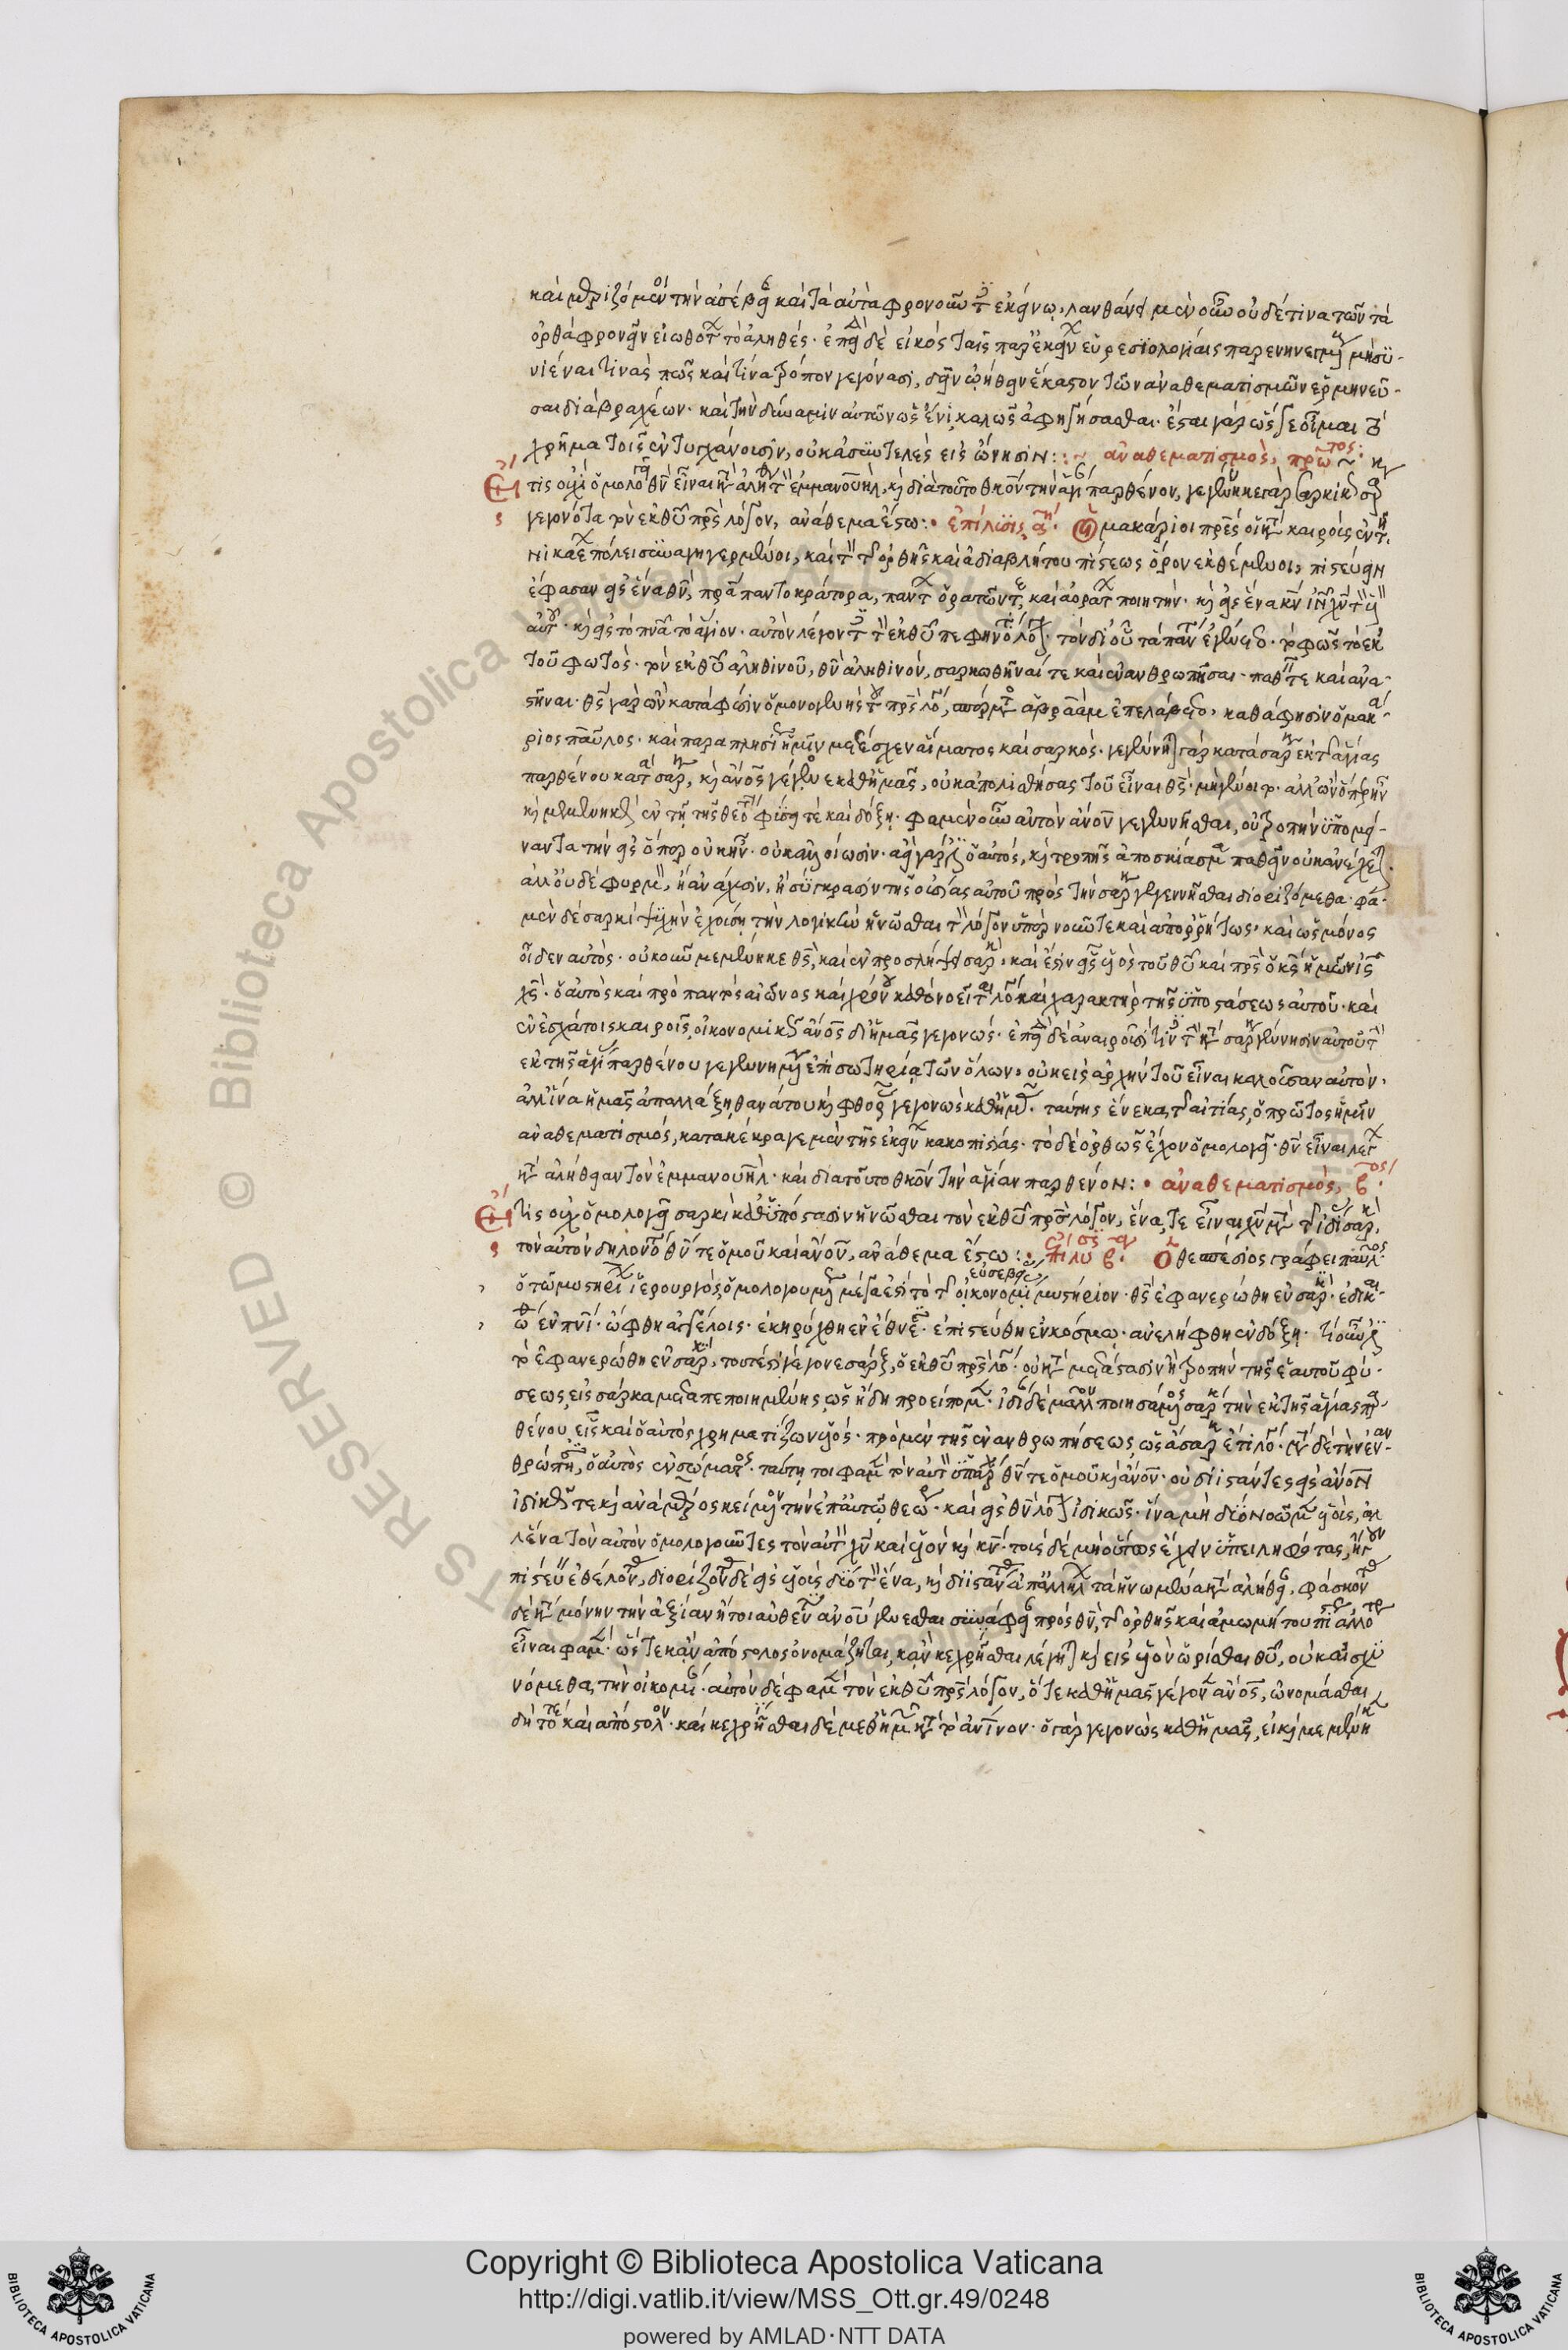 καὶ τὴν ἀσέβ καὶ τὰ αὐτὰ φρονοῦν ἐκείνῳ, λανθάν μὲν οὖν οὐδέ τινα τῶν τὰ
ὀρθὰ φρονεῖν εἰωθότ τὸ ἀληθές· ἐπειδὴ δὲ εἰκὸς ταῖς παρ' ἐκείν εὑρεσιολογίαις μὴ συ-
νιέναι τινὰς πῶς καὶ τίνα τρόπον γεγόνασι, δεῖν ᾠήθην ἕκαστον τῶν ἀναθεματισμῶν ἑρμηνεῦ-
σαι διὰ βραχέων· καὶ τὴν δύναμιν αὐτῶν ὡς ἔνι καλῶς ἀφηγήσασθαι· ἔσται γὰρ ὥς γε οἶμαι τὸ
χρῆμα τοῖς ἐντυγχάνουσιν, οὐκ ἀσυντελὲς εἰς ὄνησιν: ἀναθεματισμὸς, πρῶτος·
Εἴ τις οὐχὶ ὁμολογεῖ θν εἶναι κατὰ ἀλήθ τὸν ἐμμανουὴλ, καὶ διὰ τοῦτο θκον τὴν ἁγί παρθένον, γεγέννηκε γὰρ σαρκικῶς σάρ
γεγονότα τὸν ἐκ θυ πρς λόγον, ἀνάθεμα ἔστω: ἐπίλυσις α· Οἱ μακάριοι πρες οἱ κατὰ καιροὺς ἐν τῇ
νικαέ πόλει συναγηγερμένοι, καὶ τὸν τῆς ὀρθῆς καὶ ἀδιαβλήτου πίστεως ὅρον ἐκθέμενοι, πιστεύειν
ἔφασαν εἰς ἕνα θν, πρα παντοκράτορα, πάντ ὁρατῶν τε, καὶ ἀοράτ ποιητήν· καὶ εἰς ἕνα κν ιν χν τὸν υν
αὐτοῦ· καὶ εἰς τὸ πνα τὸ ἅγιον· αὐτὸν λέγοντες τὸν ἐκ θυ πεφηνότα λόγον· τὸν δι' οὗ τὰ πάντ ἐγένετο· τὸ φῶς τὸ ἐκ
τοῦ φωτός· τὸν ἐκ θυ ἀληθινοῦ, θν ἀληθινόν, σαρκωθῆναί τε καὶ ἐνανθρωπῆσαι· παθεῖν τε καὶ ἀνα-
στῆναι· θς γὰρ ὢν κατὰ φύσιν ὁ μονογενὴς τοῦ πρς λόγος, σπέρματος ἀβραὰμ ἐπελάβετο, καθά φησιν ὁ μακά-
ριος παῦλος· καὶ παραπλησί ἡμῖν μετέσχεν αἵματος καὶ σαρκός· γεγέννηται γὰρ κατὰ σάρκα ἐκ τῆς ἁγίας
παρθένου κατὰ σάρκα, καὶ ανος γέγονε καθ' ἡμᾶς, οὐκ ἀπολισθήσας τοῦ εἶναι θς· μὴ γένοιτο· ἀλλ' ὢν ὅπερ ἦν
καὶ μεμενηκὼς ἐν τῇ τῆς θεότ φύσει τε καὶ δόξῃ· φαμὲν οὖν αὐτὸν ανον γεγενῆσθαι, οὐ τροπὴν ὑπομεί-
ναντα τὴν εἰς ὅπερ οὐκ ἦν· οὐκ ἀλλοίωσιν· ἀεὶ γάρ ἐστιν ὁ αὐτός, καὶ τροπῆς ἀποσκίασμα παθεῖν οὐκ ἀνέχεται·
ἀλλ' οὐδὲ φυρμὸν, ἢ ἀνάχυσιν, ἢ σύγκρασιν τῆς οὐσίας αὐτοῦ πρὸς τὴν σάρκα γεγεννῆσθαι διοριζόμεθα· φα-
μὲν δὲ σαρκὶ ψυχὴν ἐχούσῃ τὴν λογικὴν ἡνῶσθαι τὸν λόγον ὑπὲρ νοῦν τε καὶ ἀπορρήτως, καὶ ὡς μόνος
οἶδεν αὐτός· οὐκοῦν μεμένηκε θς, καὶ ἐν προσλήψει σαρκὸς, καί ἐστιν εἷς υἱὸς τοῦ θυ καὶ πρς ὁ κς ἡμῶν ις
χς· ὁ αὐτὸς καὶ πρὸ παντὸς αἰῶνος καὶ χρόνου καθὸ νοεῖται λόγος καὶ χαρακτὴρ τῆς ὑποστάσεως αὐτοῦ· καὶ
ἐν ἐσχάτοις καιροῖς οἰκονομικῶς ανος δι' ἡμᾶς γεγονώς· ἐπειδὴ δὲ ἀναιροῦσί τινες τὴν κατὰ σάρκα γέννησιν αὐτοῦ τὴν
ἐκ τῆς ἁγί παρθένου γεγενημένην ἐπὶ σωτηρίᾳ τῶν ὅλων· οὐκ εἰς ἀρχὴν τοῦ εἶναι καλοῦσαν αὐτόν·
ἀλλ' ἵνα ἡμᾶς ἀπαλλάξῃ θανάτου καὶ φθορᾶς γεγονὼς καθ' ἡμᾶς· ταύτης ἕνεκα τῆς αἰτίας, ὁ πρῶτος ἡμῖν
ἀναθεματισμός, κατακέκραγε μὲν τῆς ἐκείν κακοπιστίας· τὸ δὲ ὀρθῶς ἔχον ὁμολογεῖ· θν εἶναι λέγ
κατὰ ἀλήθειαν τὸν ἐμμανουήλ· καὶ διὰ τοῦτο θκον τὴν ἁγίαν παρθένον: ἀναθεματισμὸς, βος·
Εἴ τις οὐχ ὁμολογεῖ σαρκὶ καθ' ὑπόστασιν ἡνῶσθαι τὸν ἐκ θυ πρς λόγον, ἕνα τε εἶναι χν μετὰ τῆς ἰδίας σαρκὸς,
τὸν αὐτὸν δηλονότι θν τε ὁμοῦ καὶ ανον, ἀνάθεμα ἔστω: ἐπίλυσις β· Ὁ θεσπέσιος γράφει παῦλος
ὁ τῶν μυστηρί ἱερουργὸς ὁμολογουμένως μέγα ἐστὶ τὸ τῆς εὐσεβείας οἰκονομί μυστήριον· θς ἐφανερώθη ἐν σαρκί· ἐδικαι-
ώθη ἐν πνι· ὤφθη ἀγγέλοις· ἐκηρύχθη ἐν ἔθνεσιν· ἐπιστεύθη ἐν κόσμῳ· ἀνελήφθη ἐν δόξῃ· τί οὖν ἐστι
τὸ ἐφανερώθη ἐν σαρκί, τουτέστι γέγονε σάρξ, ὁ ἐκ θυ πρς λόγος· οὐ κατὰ μετάστασιν ἢ τροπὴν τῆς ἑαυτοῦ φύ-
σεως εἰς σάρκα μεταπεποιημένης ὡς ἤδη προείπομεν· ἰδί δὲ μᾶλλον ποιησάμενος σάρκα τὴν ἐκ τῆς ἁγίας παρ-
θένου, εἷς καὶ ὁ αὐτὸς χρηματίζων υἱός· πρὸ μὲν τῆς ἐνανθρωπήσεως ὡς ἄσαρκος ἔτι λόγος· μετὰ δὲ τὴν ἐναν-
θρώπησιν, ὁ αὐτὸς ἐν σώματι· ταύτῃ τοι φαμὲν τὸν αὐτὸν ὑπάρχειν θν τε ὁμοῦ καὶ ανον· οὐ διιστάντες εἰς ανον
ἰδικῶς τε καὶ ἀνὰ μέρος κείμενον τὴν ἐπ' αὐτῷ θεω· καὶ εἰς θν λόγον ἰδικῶς· ἵνα μὴ δύο νοῶμεν υἱοὺς, ἀλ-
λ' ἕνα τὸν αὐτὸν ὁμολογοῦντες τὸν αὐτὸν χν καὶ υἱὸν καὶ κν· τοὺς δὲ μὴ οὕτως ἔχειν ὑπειληφότας, ἤγουν
πιστεύειν ἐθέλοντας, διορίζοντας δὲ εἰς υἱοὺς δύο τὸν ἕνα, καὶ διιστάντας ἀπ' ἀλλήλων τὰ ἡνωμένα κατὰ ἀλήθειαν, φάσκοντας
δὲ κατὰ μόνην τὴν ἀξίαν ἤτοι αὐθεντ ανου γενέσθαι συνάφει πρὸς θν, τῆς ὀρθῆς καὶ ἀμωμήτου πίστεως ἀλλοτρ
εἶναι φαμέν· ὥστε κἂν ἀπόστολος ὀνομάζηται, κἂν κεχρῆσθαι λέγηται καὶ εἰς υἱὸν ὡρίσθαι θυ, οὐκ αἰσχυ
νόμεθα τὴν οἰκονομί· αὐτὸν δέ φαμεν τὸν ἐκ θυ πρς λόγον, ὅτε καθ' ἡμᾶς γέγονεν ανος, ὠνομάσθαι
δὴ τότε καὶ ἀπόστολον· καὶ κεχρῆσθαι δὲ μεθ' ἡμῶν κατὰ τὸ ανινον· ὁ γὰρ γεγονὼς καθ' ἡμᾶς, εἰ καὶ μεμένηκ
Copyright © Biblioteca Apostolica Vaticana
http://digi.vatlib.it/view/MSS_Ott.gr.49/0248
powered by AMLAD·NTT DATA
BIBLIOTECA APOSTOLICA VATICANA
BIBLIOTECA APOSTOLICA VATICANA